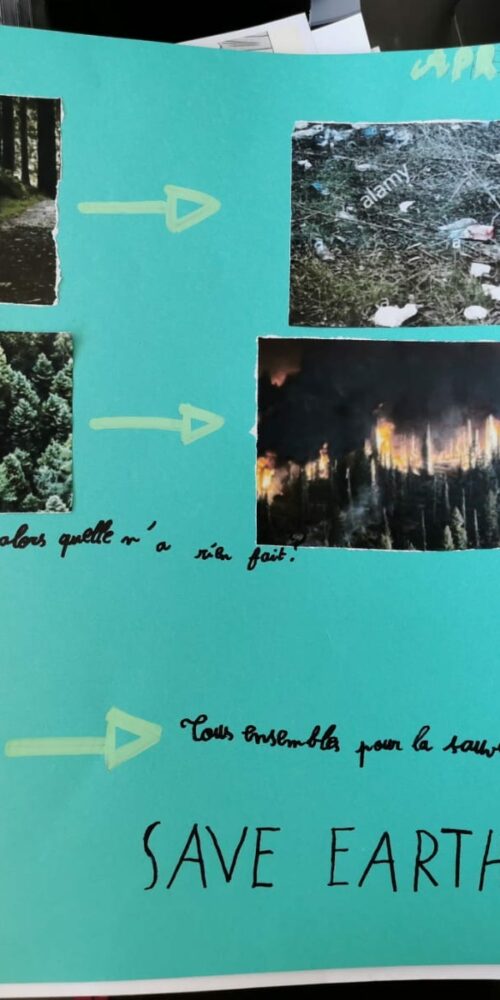 APR
alamy
alors quelle n'a rien fait?
Tous ensembles pour la sauve
SAVE EARTH